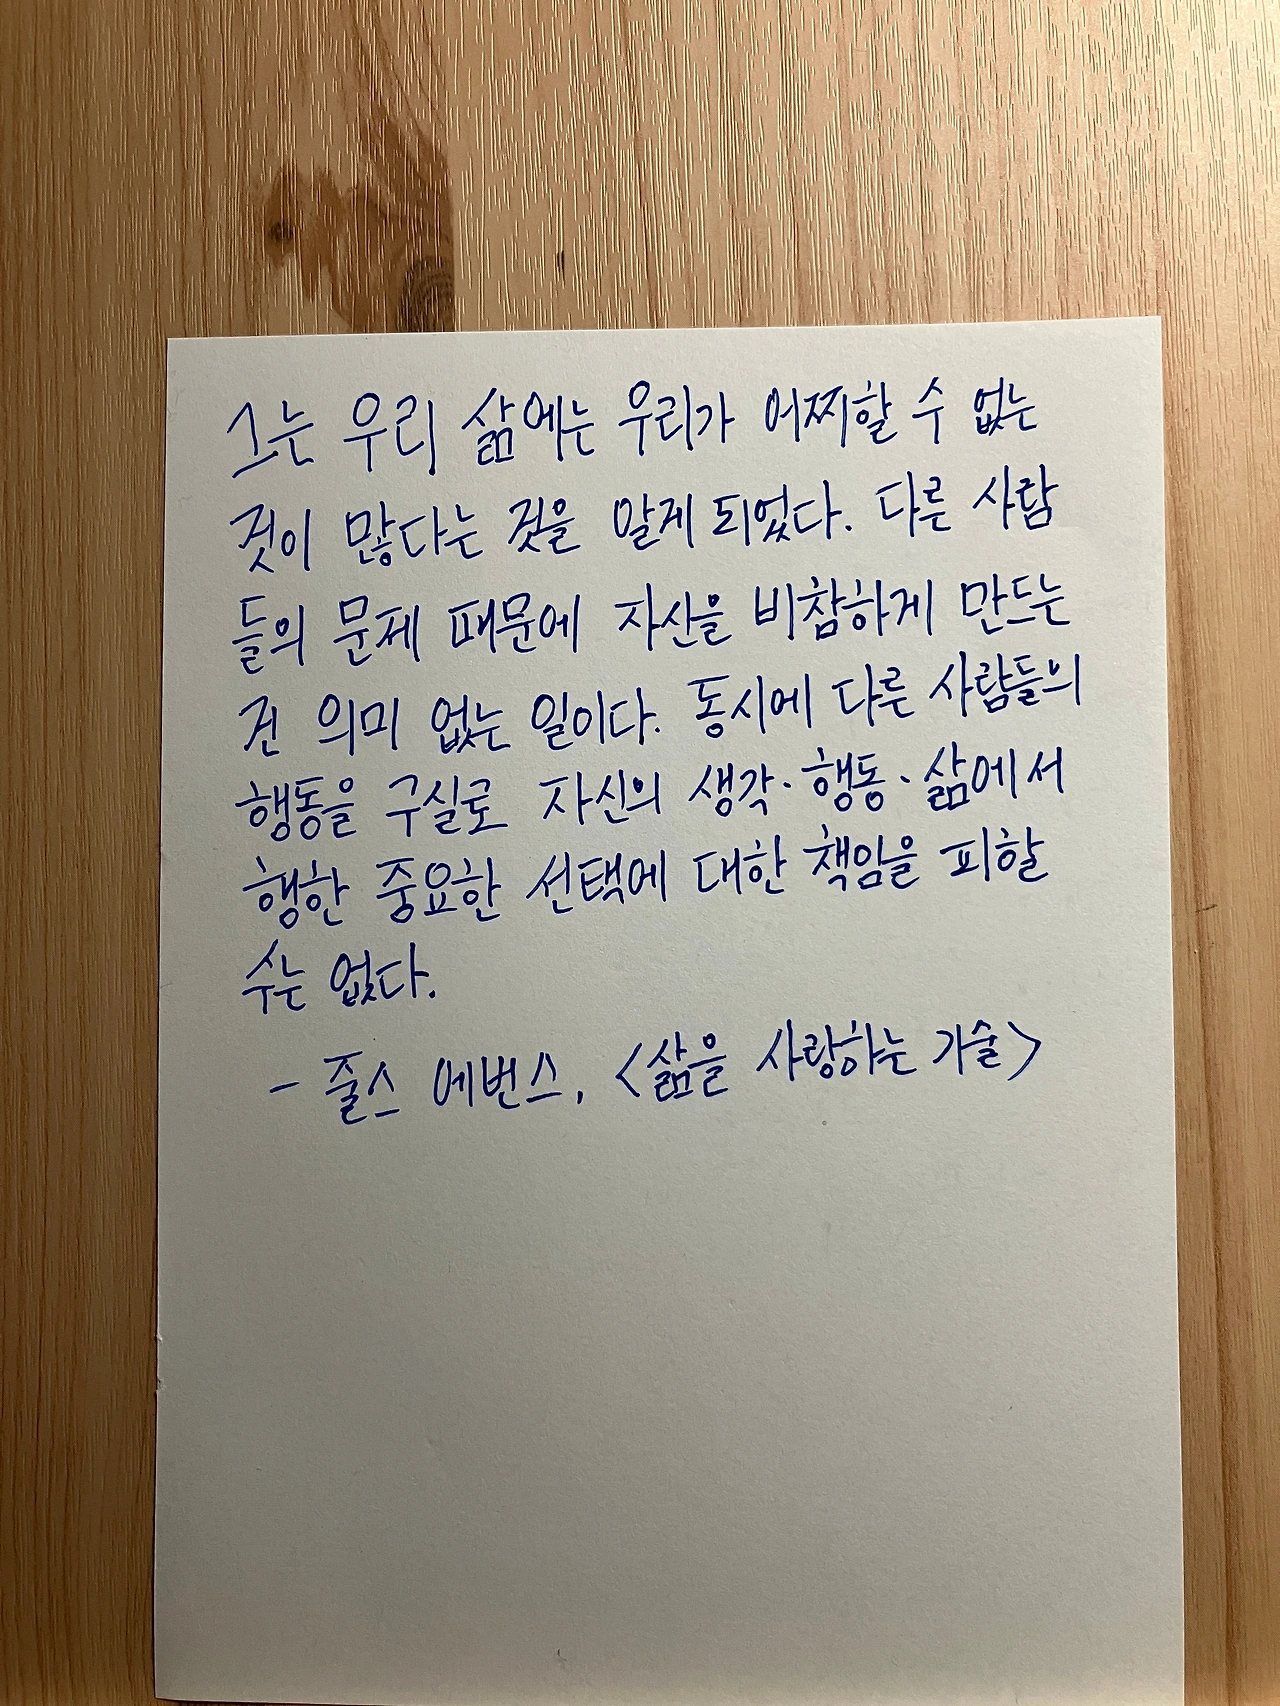 그는 우리 삶에는 우리가 어찌할 수 없는
것이 많다는 것을 알게 되었다. 다른 사람
들의 문제 때문에 자신을 비참하게 만드는
건 의미 없는 일이다. 동시에 다른 사람들의
행동을 구실로 자신의 생각·행동·삶에서
행한 중요한 선택에 대한 책임을 피할
수는 없다.
- 줄스 에번스, <삶을 사랑하는 기술>